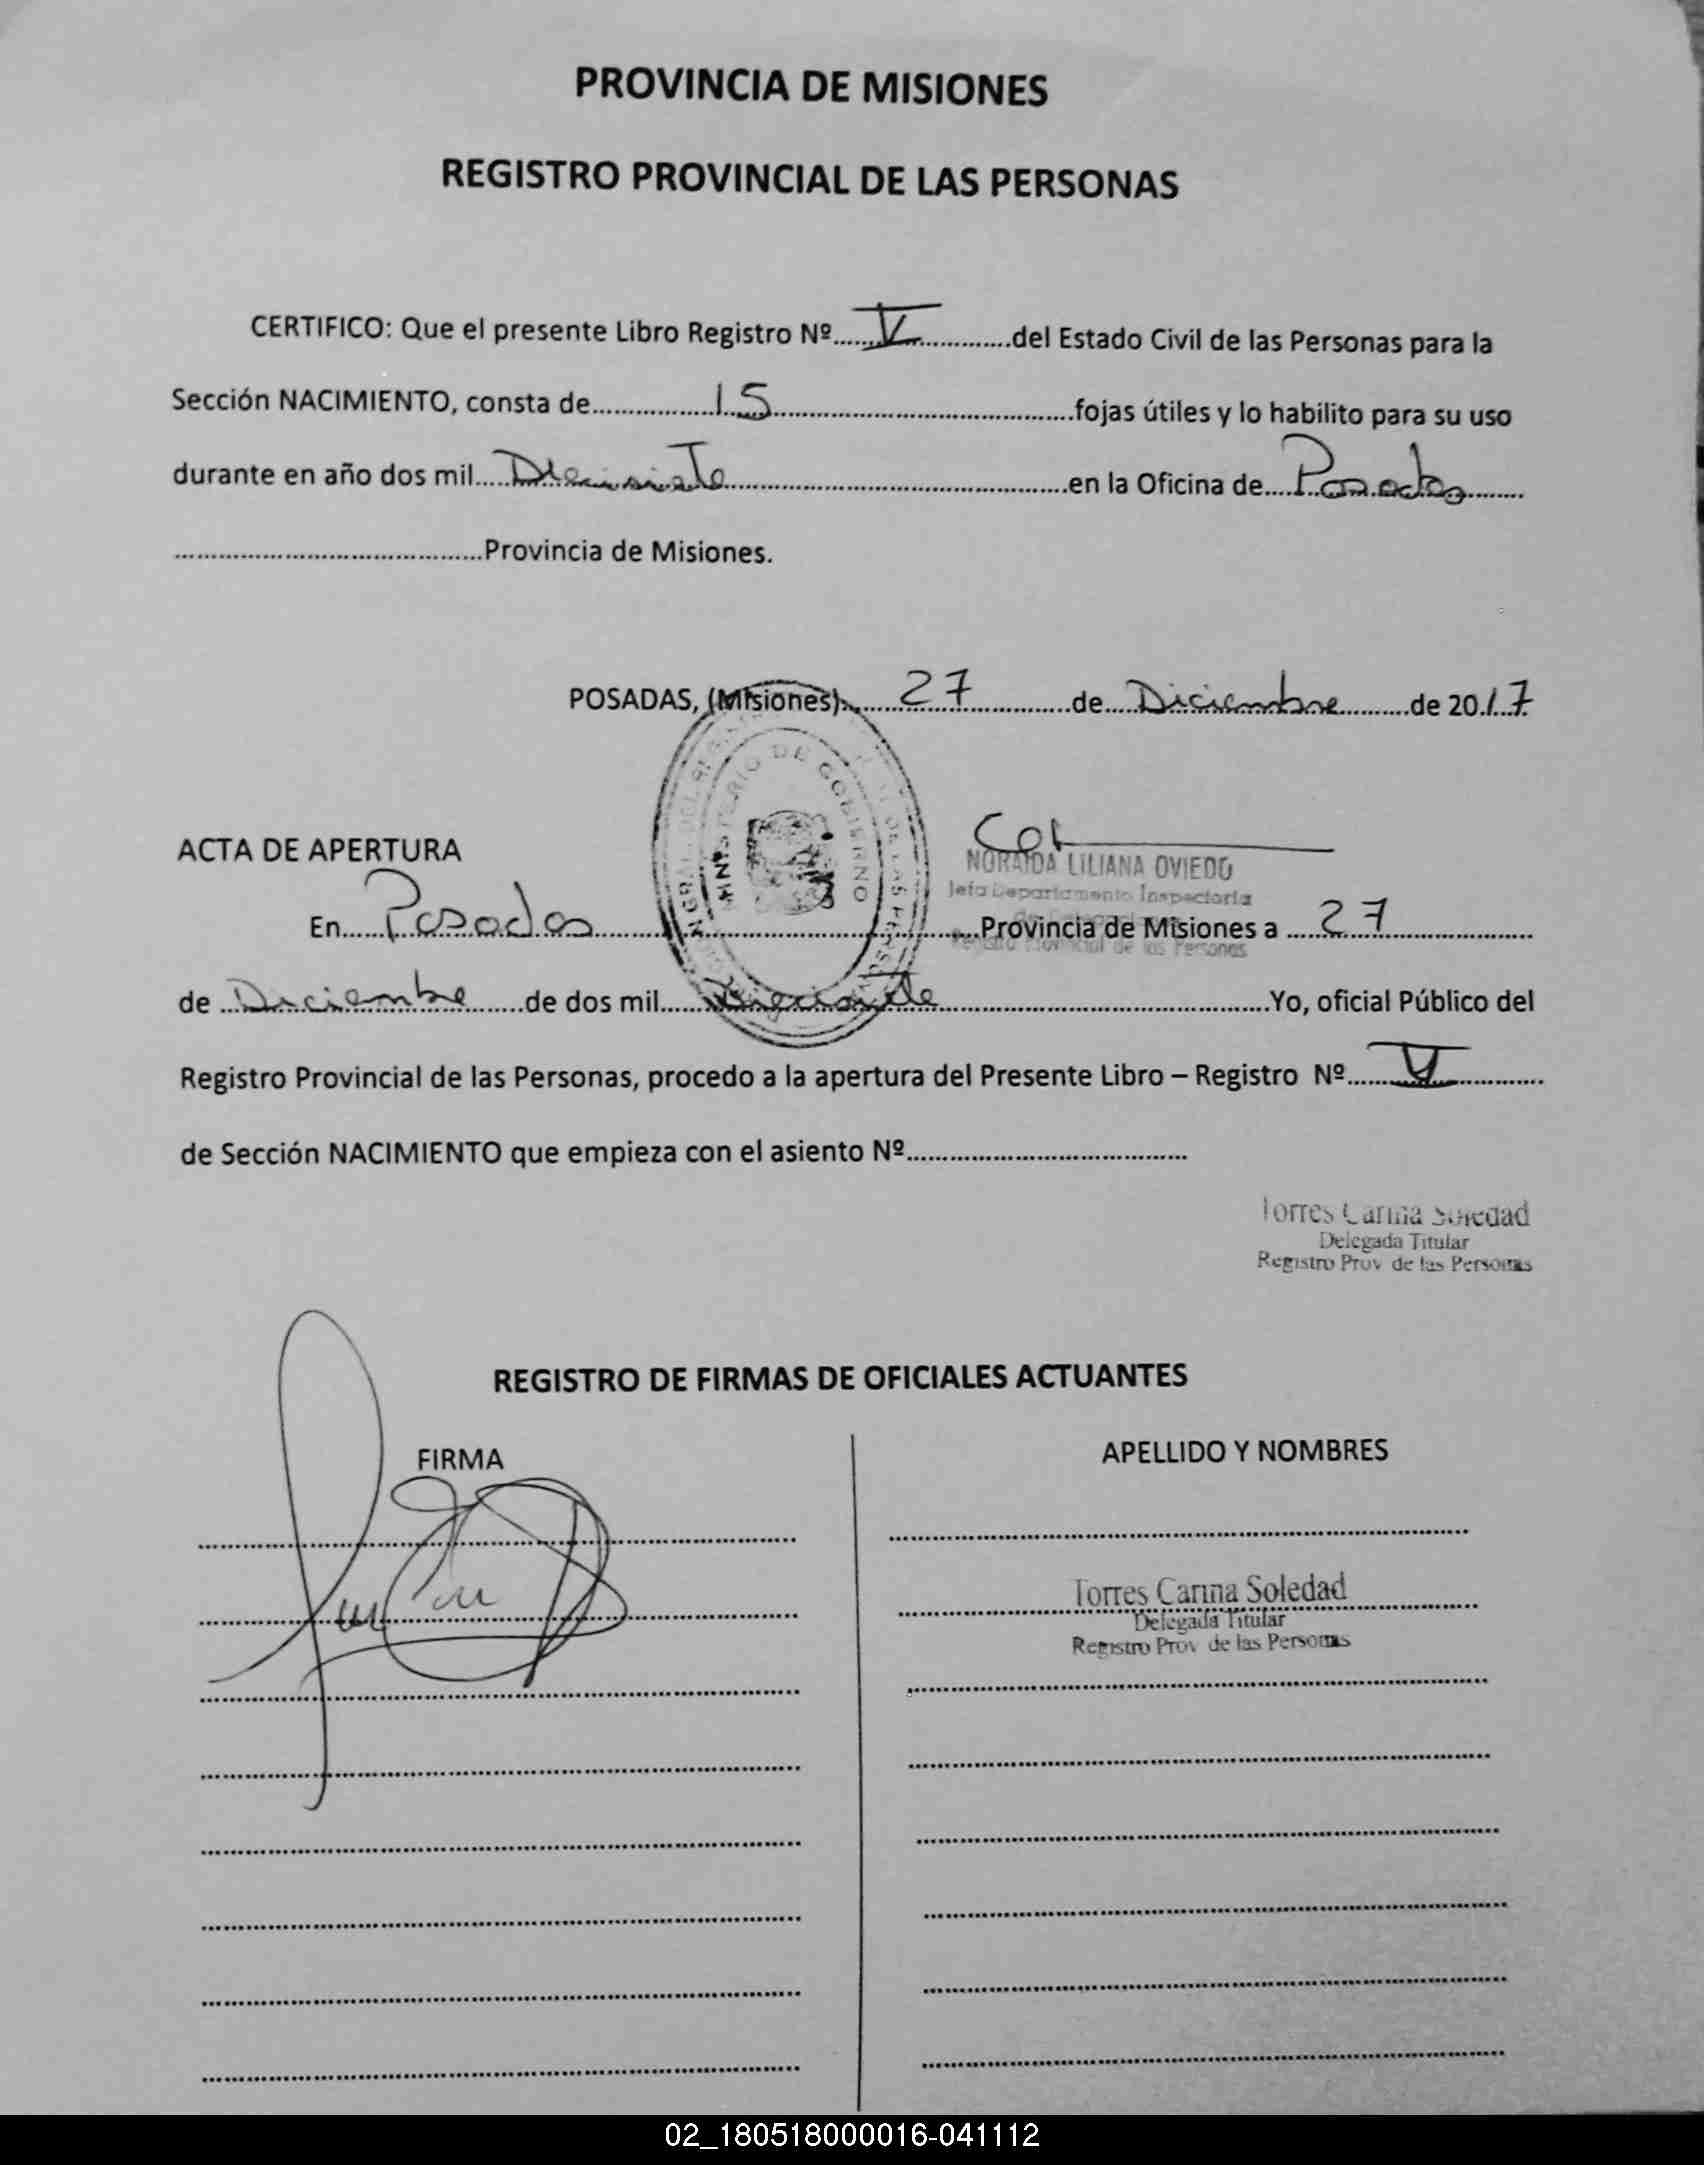 PROVINCIA DE MISIONES
REGISTRO PROVINCIAL DE LAS PERSONAS
CERTIFICO: Que el presente Libro Registro Nº......V............del Estado Civil de las Personas para la
Sección NACIMIENTO, consta de.................15..........................................fojas útiles y lo habilito para su uso
durante en año dos mil.....Diecisiete...............................................en la Oficina de....Posadas........
..........................................Provincia de Misiones.
POSADAS, (Misiones)........27..............de....Diciembre..........de 2017
MINISTERIO DE GOBIERNO
NORAIDA LILIANA OVIEDO
Jefa Departamento Inspectoria
Registro Provincial de las Personas
ACTA DE APERTURA
En......Posadas.....................................................Provincia de Misiones a .....27....................
de ...Diciembre........de dos mil......Diecisiete..............................................Yo, oficial Público del
Registro Provincial de las Personas, procedo a la apertura del Presente Libro – Registro Nº........V............
de Sección NACIMIENTO que empieza con el asiento Nº.......................................
Torres Carina Soledad
Delegada Titular
Registro Prov de las Personas
REGISTRO DE FIRMAS DE OFICIALES ACTUANTES
FIRMA
APELLIDO Y NOMBRES
Torres Carina Soledad
Delegada Titular
Registro Prov de las Personas
02_180518000016-041112